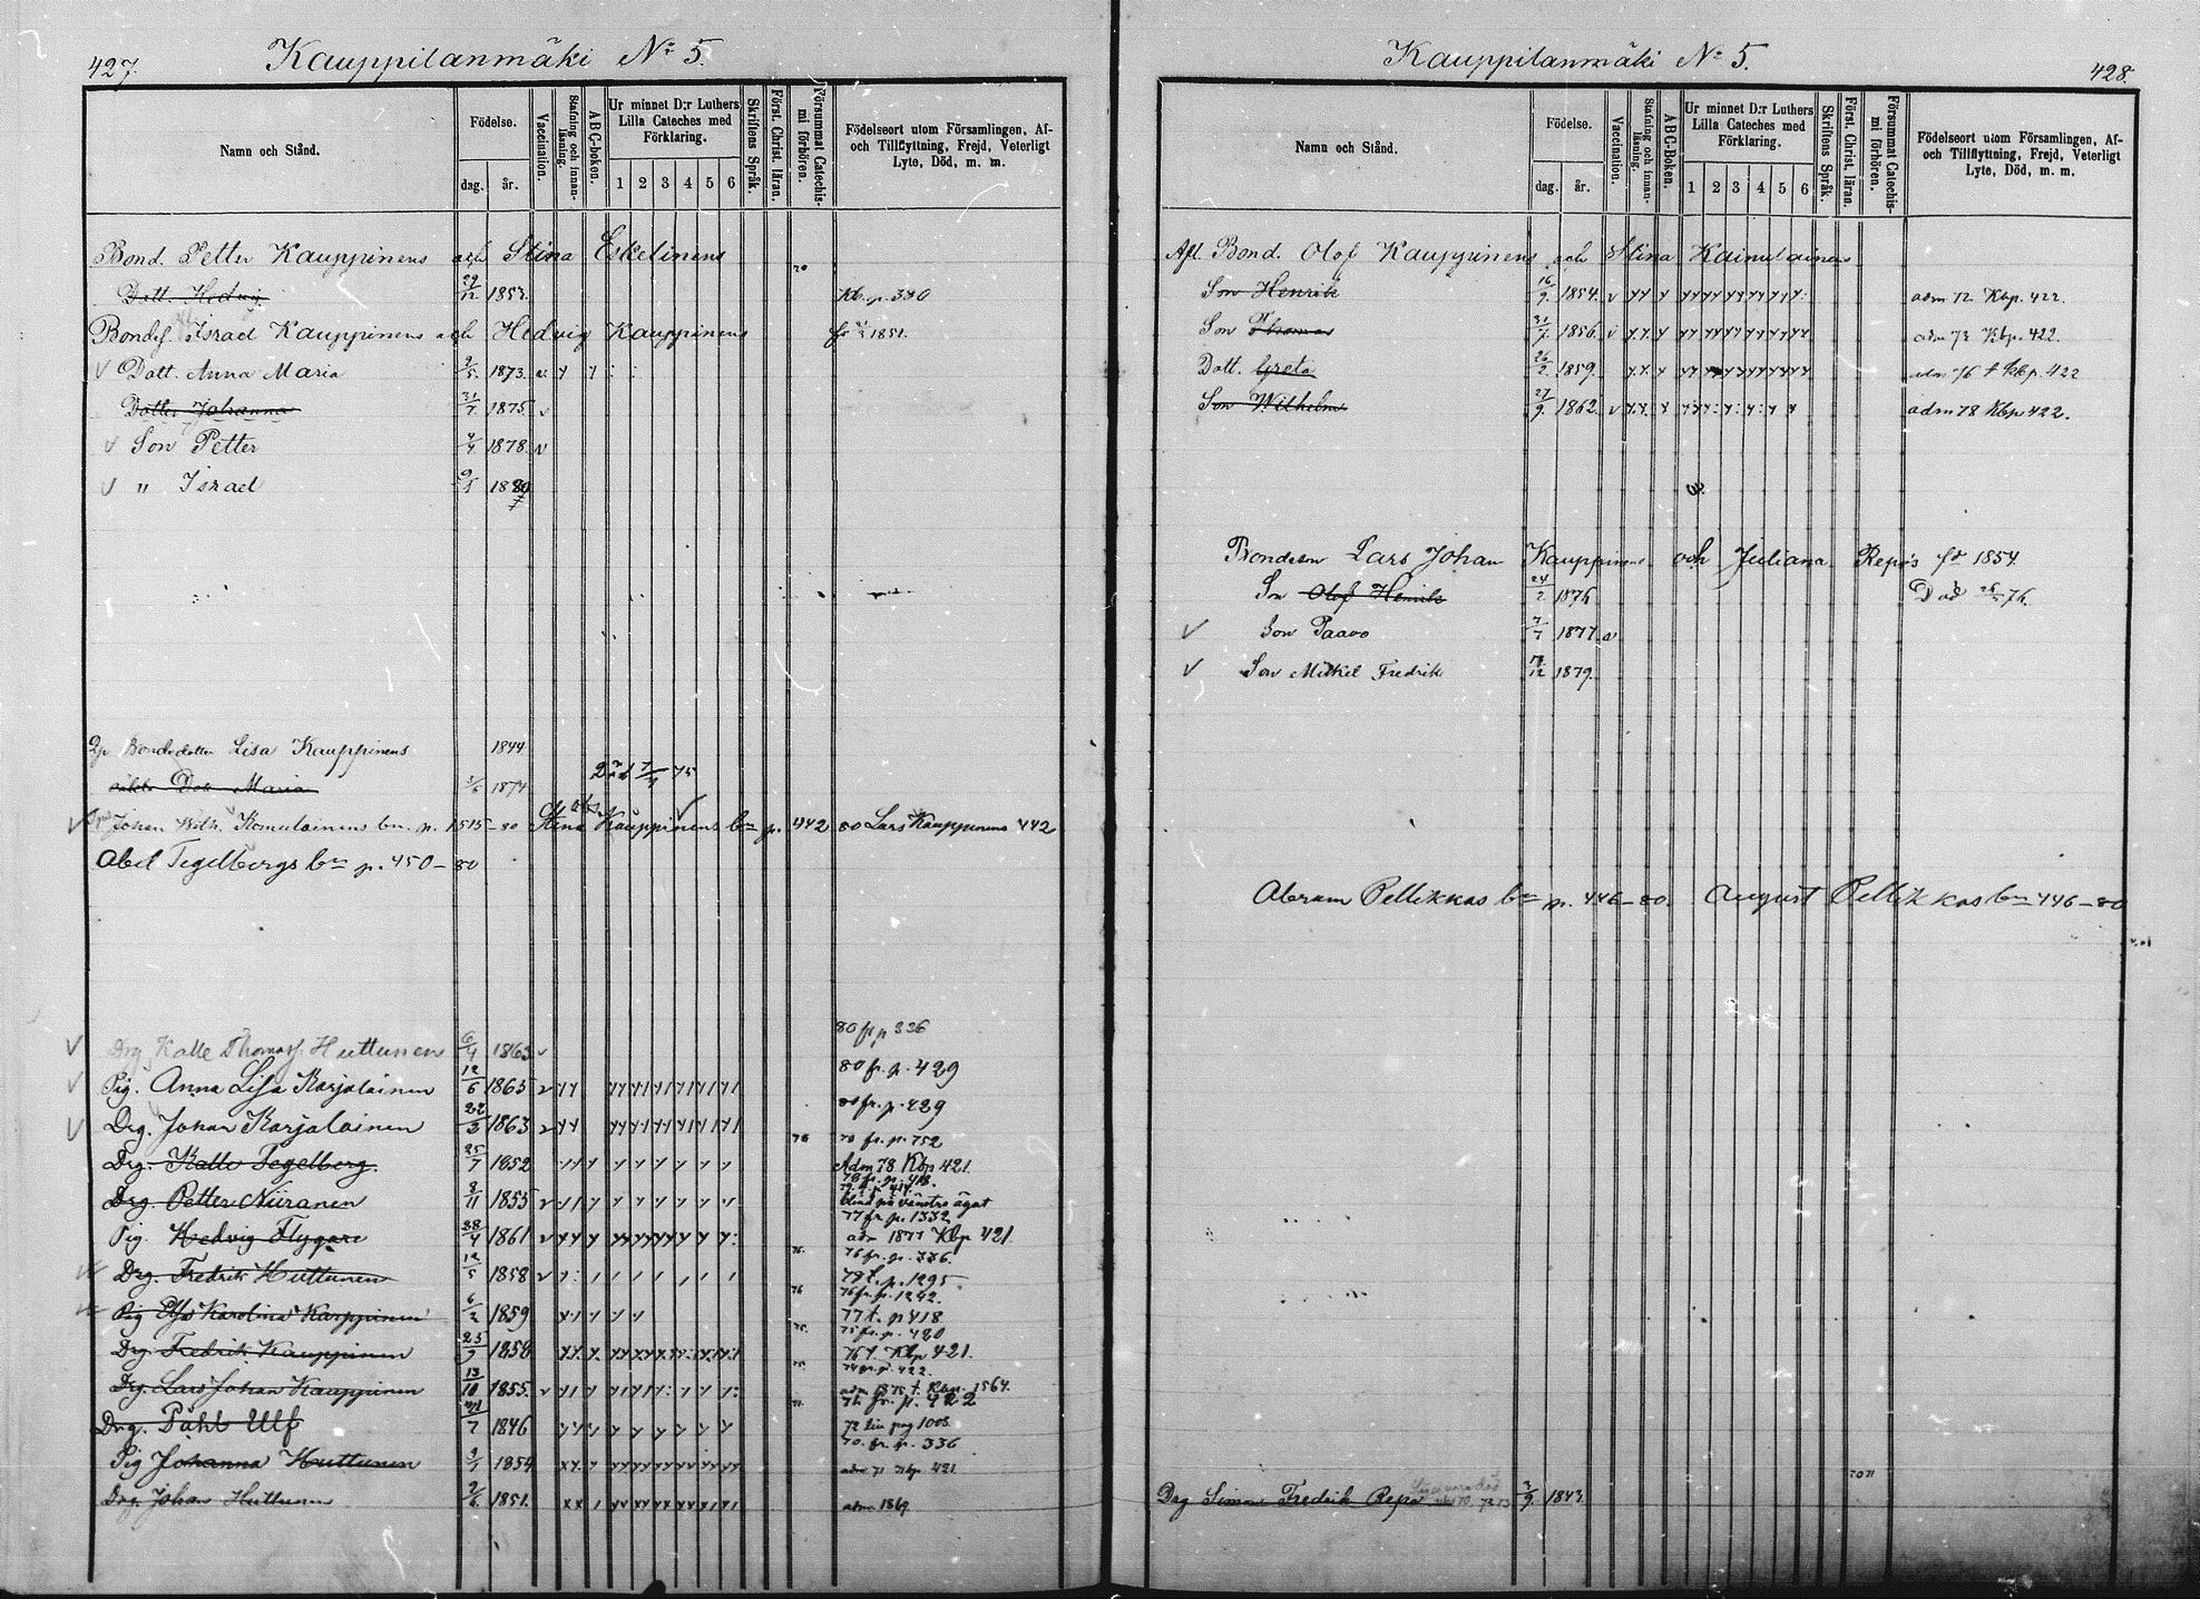 427. Kauppilanmäki No 5.
Namn och Stånd.
Födelse.
dag. år.
Vaccination.
Stafning och innanläsning.
ABC-boken.
Ur minnet D:r Luthers Lilla Cateches med Förklaring.
1 2 3 4 5 6
Skriftens Språk.
Först. Christ. läran.
Försummat Catechismi förhören.
Födelseort utom Församlingen, Af- och Tillflyttning, Frejd, Veterligt Lyte, Död, m. m.
Bond. Petter Kauppinens och Stina Eskelinens
Dott. Hedvig 29/12 1853. Kb. p. 330
Bondes. Israel Kauppinens och Hedvig Kauppinens 1851.
v Dott. Anna Maria 2/5 1873.
Dotter Johanna 31/7 1875 v
v Son Petter 4/4 1878 v
v " Israel 1880
Bondedotter Lisa Kauppinens 1844
Dott Maria 1874 Död 7/4 75
v Johan Wilh. Komulainens bn. p. 1515-80 Stina Kauppinens bn p. 442 80 Lars Kauppinens 442
Abel Tegelbergs bn p. 450-80
80 fr p 336
v Drg Kalle Thomasf. Huttunen 6/4 1863 v
80 fr. p. 429
v Pig. Anna Lisa Karjalainen 12/6 1865 v
80 fr. p. 429
v Drg. Johan Karjalainen 22/3 1863 v
78 fr. p. 752
Drg. Kalle Tegelberg. 25/7 1852 Adm 78 Kbp 421.
Drg. Petter Niiranen 8/11 1855 v blind på vänstra ögat
77 fr p. 1332
Pig. Hedvig Flygare 28/4 1861 v adm 1877 Kbp 421
76 fr. p. 336.
Drg. Fredrik Huttunen 12/5 1858 v 79 t. p. 1295
76 fr. p. 1242.
Pig Elsa Karolina Karppinen 6/2 1859 77 t. p 418
75 fr. p. 420
Drg. Fredrik Kauppinen 1858 76 t. Kbp 421.
74 fr. p. 422.
Drg. Lars Johan Kauppinen 13/10 1855. v adm 1875 t. Kbp. 1564.
fr. p. 422
Drg. Påhl Ulf 1846 72 pag 1008
70. fr. p. 336
Pig Johanna Huttunen 1854 adm 71 Kbp 421
Drg. Johan Huttunen 1851. adm 1869
Kauppilanmäki No 5. 428.
Namn och Stånd.
Födelse.
dag. år.
Vaccination.
Stafning och innanläsning.
ABC-Boken.
Ur minnet D:r Luthers Lilla Cateches med Förklaring.
1 2 3 4 5 6
Skriftens Språk.
Först. Christ. läran.
Försummat Catechismi förhören.
Födelseort utom Församlingen, Af- och Tillflyttning, Frejd, Veterligt Lyte, Död, m. m.
Afl. Bond. Olof Kauppinens och Stina Kainulainens
Son Henrik 16/9 1854. v adm 72 Kbp. 422.
Son Thomas 31/7 1856. v adm 73 Kbp. 422.
Dott. Greta 26/2 1859. adm 76 t Kbp. 422
Son Wilhelm 27/9 1862 v adm 78 Kbp 422.
Bondeson Lars Johan Kauppinens och Juliana Repos fd 1854
Son Olof Henrik 24/2 1876 Död 76.
v Son Paavo 7/7 1877.
v Son Mikkel Fredrik 1879.
Abram Pellikkas bn p. 446-80. August Pellikkas bn 446-80
Drg Simon Fredrik Repo 1843.